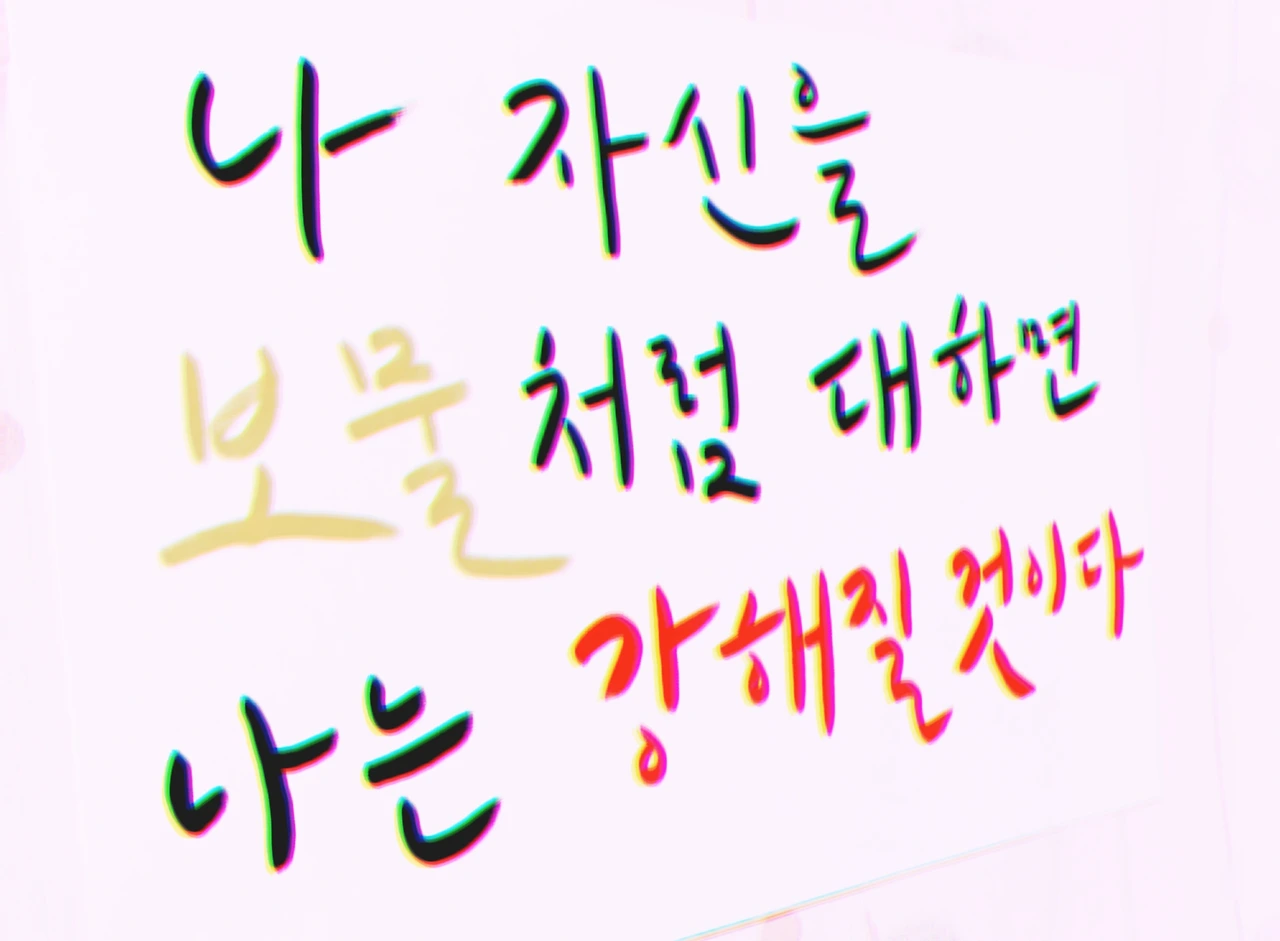 나 자신을
보물처럼 대하면
나는 강해질 것이다